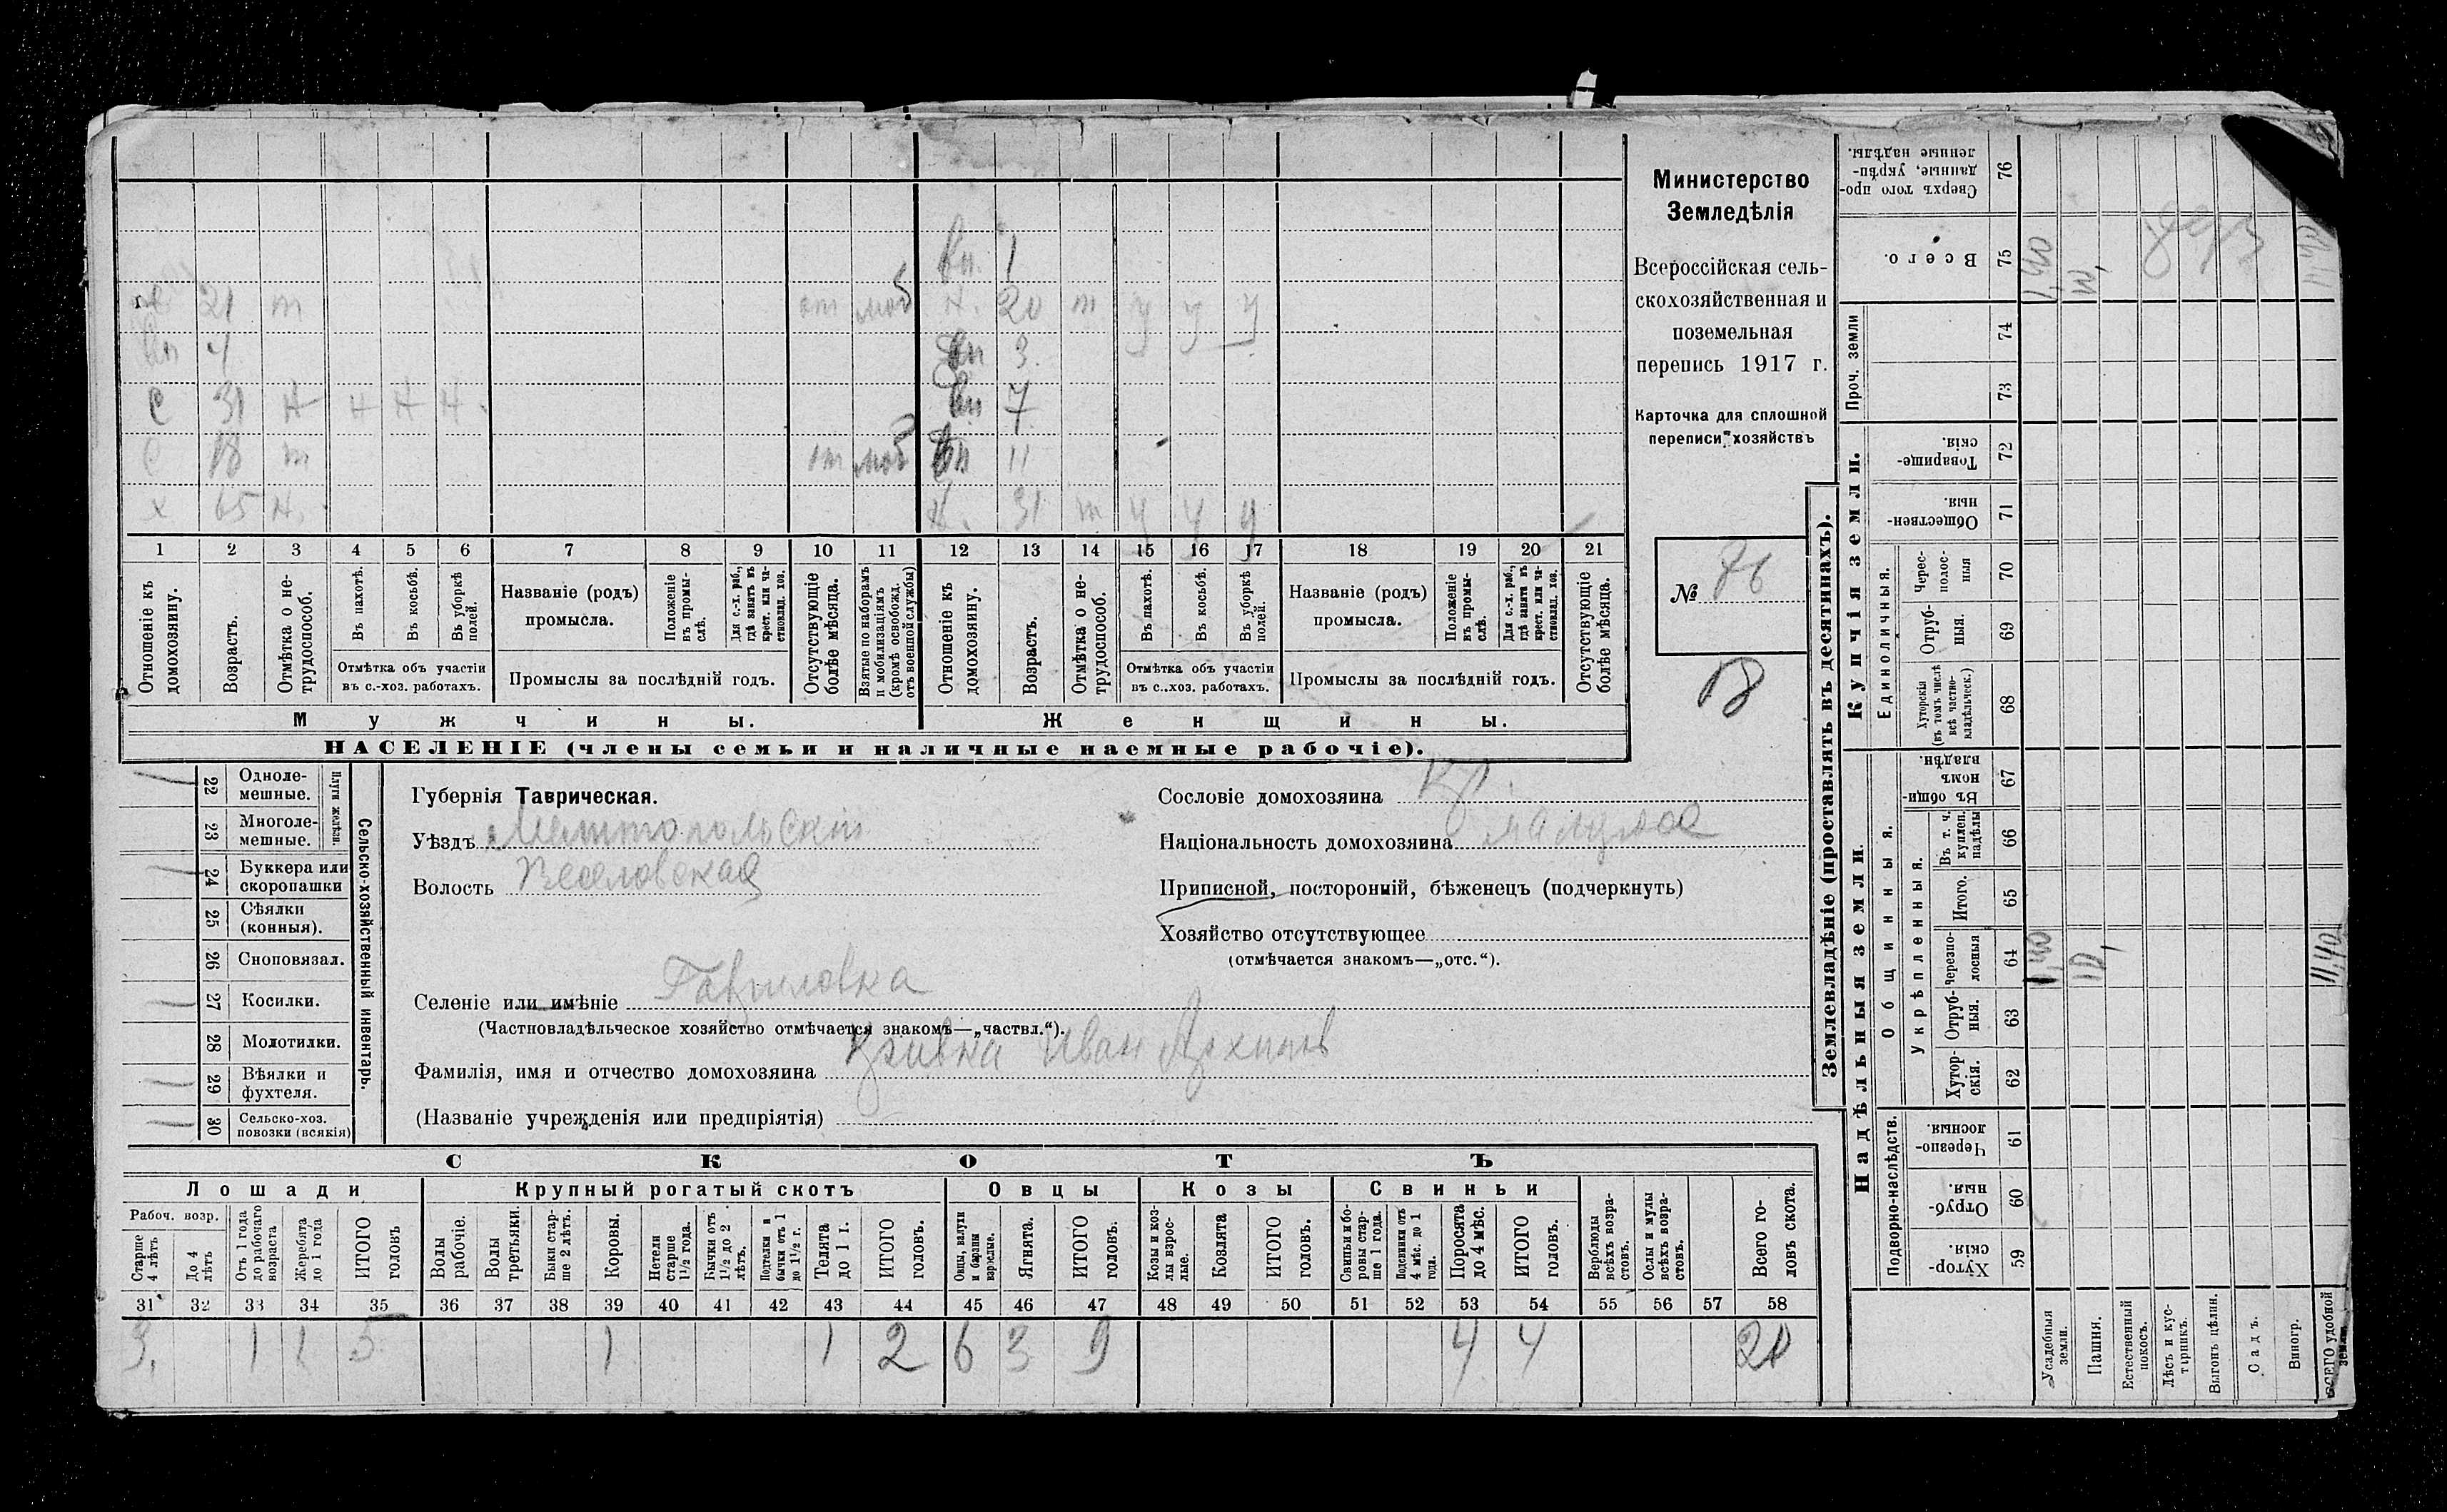 Министерство
Земледѣлія
Всероссійская сель-
скохозяйственная и
поземельная
перепись 1917 г.
Карточка для сплошной
переписи хозяйствъ
№ 76
18
вп. 1
21 т от моб ж. 20 т у у у
вп 4 вп 3.
с 31 н н н н. вп 7
с 18 т от моб вп 11
х 65 н. ж. 31 т у у у
1 2 3 4 5 6 7 8 9 10 11 12 13 14 15 16 17 18 19 20 21
Отношеніе къ домохозяину.
Возрастъ.
Отмѣтка о не-трудоспособ.
Въ пахотѣ.
Въ косьбѣ.
Въ уборкѣ полей.
Отмѣтка объ участіи
въ с.-хоз. работахъ.
Названіе (родъ)
промысла.
Положеніе въ промы-слѣ.
Для с.-х. раб., гдѣ занятъ въ крест. или ча-стновлад. хоз.
Промыслы за послѣдній годъ.
Отсутствующіе болѣе мѣсяца.
Взятые по наборамъ и мобилизаціямъ (кромѣ освобожд. отъ военной службы)
Отношеніе къ домохозяину.
Возрастъ.
Отмѣтка о не-трудоспособ.
Въ пахотѣ.
Въ косьбѣ.
Въ уборкѣ полей.
Отмѣтка объ участіи
въ с.-хоз. работахъ.
Названіе (родъ)
промысла.
Положеніе въ промы-слѣ.
Для с.-х. раб., гдѣ занята въ крест. или ча-стновлад. хоз.
Промыслы за послѣдній годъ.
Отсутствующіе болѣе мѣсяца.
Мужчины. Женщины.
НАСЕЛЕНІЕ (члены семьи и наличные наемные рабочіе).
22 Одноле-мешные.
23 Многоле-мешные.
Плуги желѣзн.
24 Буккера или скоропашки
25 Сѣялки (конныя).
26 Сноповязал.
27 Косилки.
28 Молотилки.
29 Вѣялки и фухтеля.
30 Сельско-хоз. повозки (всякія)
Сельско-хозяйственный инвентарь.
Губернія Таврическая.
Уѣздъ Мелитопольскій
Волость Веселовская
Сословіе домохозяина кр.
Національность домохозяина малоросс
Приписной, посторонній, бѣженецъ (подчеркнуть)
Хозяйство отсутствующее
(отмѣчается знакомъ—„отс.“).
Селеніе или имѣніе Гавриловка
(Частновладѣльческое хозяйство отмѣчается знакомъ—„частвл.“).
Фамилія, имя и отчество домохозяина Иван Архипов
(Названіе учрежденія или предпріятія)
СКОТЪ
Лошади Крупный рогатый скотъ Овцы Козы Свиньи
Рабоч. возр.
Старше 4 лѣтъ
До 4 лѣтъ
Отъ 1 года до рабочаго возраста
Жеребята до 1 года
ИТОГО головъ
Волы рабочіе.
Волы третьяки.
Быки стар-ше 2 лѣтъ.
Коровы.
Нетели старше 1½ года.
Бычки отъ 1½ до 2 лѣтъ.
Подтелки и бычки отъ 1 до 1½ г.
Телята до 1 г.
ИТОГО головъ.
Овцы, валухи и бараны взрослые.
Ягнята.
ИТОГО головъ.
Козы и коз-лы взрос-лые.
Козлята
ИТОГО головъ.
Свиньи и бо-ровы стар-ше 1 года.
Подсвинки отъ 4 мѣс. до 1 года.
Поросята до 4 мѣс.
ИТОГО головъ.
Верблюды всѣхъ возра-стовъ.
Ослы и мулы всѣхъ возра-стовъ.
Всего го-ловъ скота.
31 32 33 34 35 36 37 38 39 40 41 42 43 44 45 46 47 48 49 50 51 52 53 54 55 56 57 58
3. 1 1 5 1 1 2 6 3 9 4 4 20
Землевладѣніе (проставлять въ десятинахъ).
Сверхъ того про-данные, укрѣп-ленные надѣлы. 76
Всего. 75 1,40 10,
Проч. земли 74 73
Купчія земли.
Товарище-скія. 72
Обществен-ныя. 71
Единоличныя.
Черес-полос-ныя 70
Отруб-ныя. 69
Хуторскія (въ томъ числѣ всѣ частно-владѣльческ.) 68
Надѣльныя земли.
Общинныя.
Въ общи-номъ владѣн. 67
Укрѣпленныя.
Въ т. ч. куплен. надѣлы 66
Итого. 65
Черезпо-лосныя 64 1,40 10, 11,40
Отруб-ныя. 63
Хутор-скія. 62
Подворно-наслѣдств.
Черезпо-лосныя. 61
Отруб-ныя. 60
Хутор-скія. 59
Усадебныя земли.
Пашня.
Естественный покосъ.
Лѣсъ и кус-тарникъ.
Выгонъ цѣлин.
Садъ.
Виногр.
ВСЕГО удобной земли.